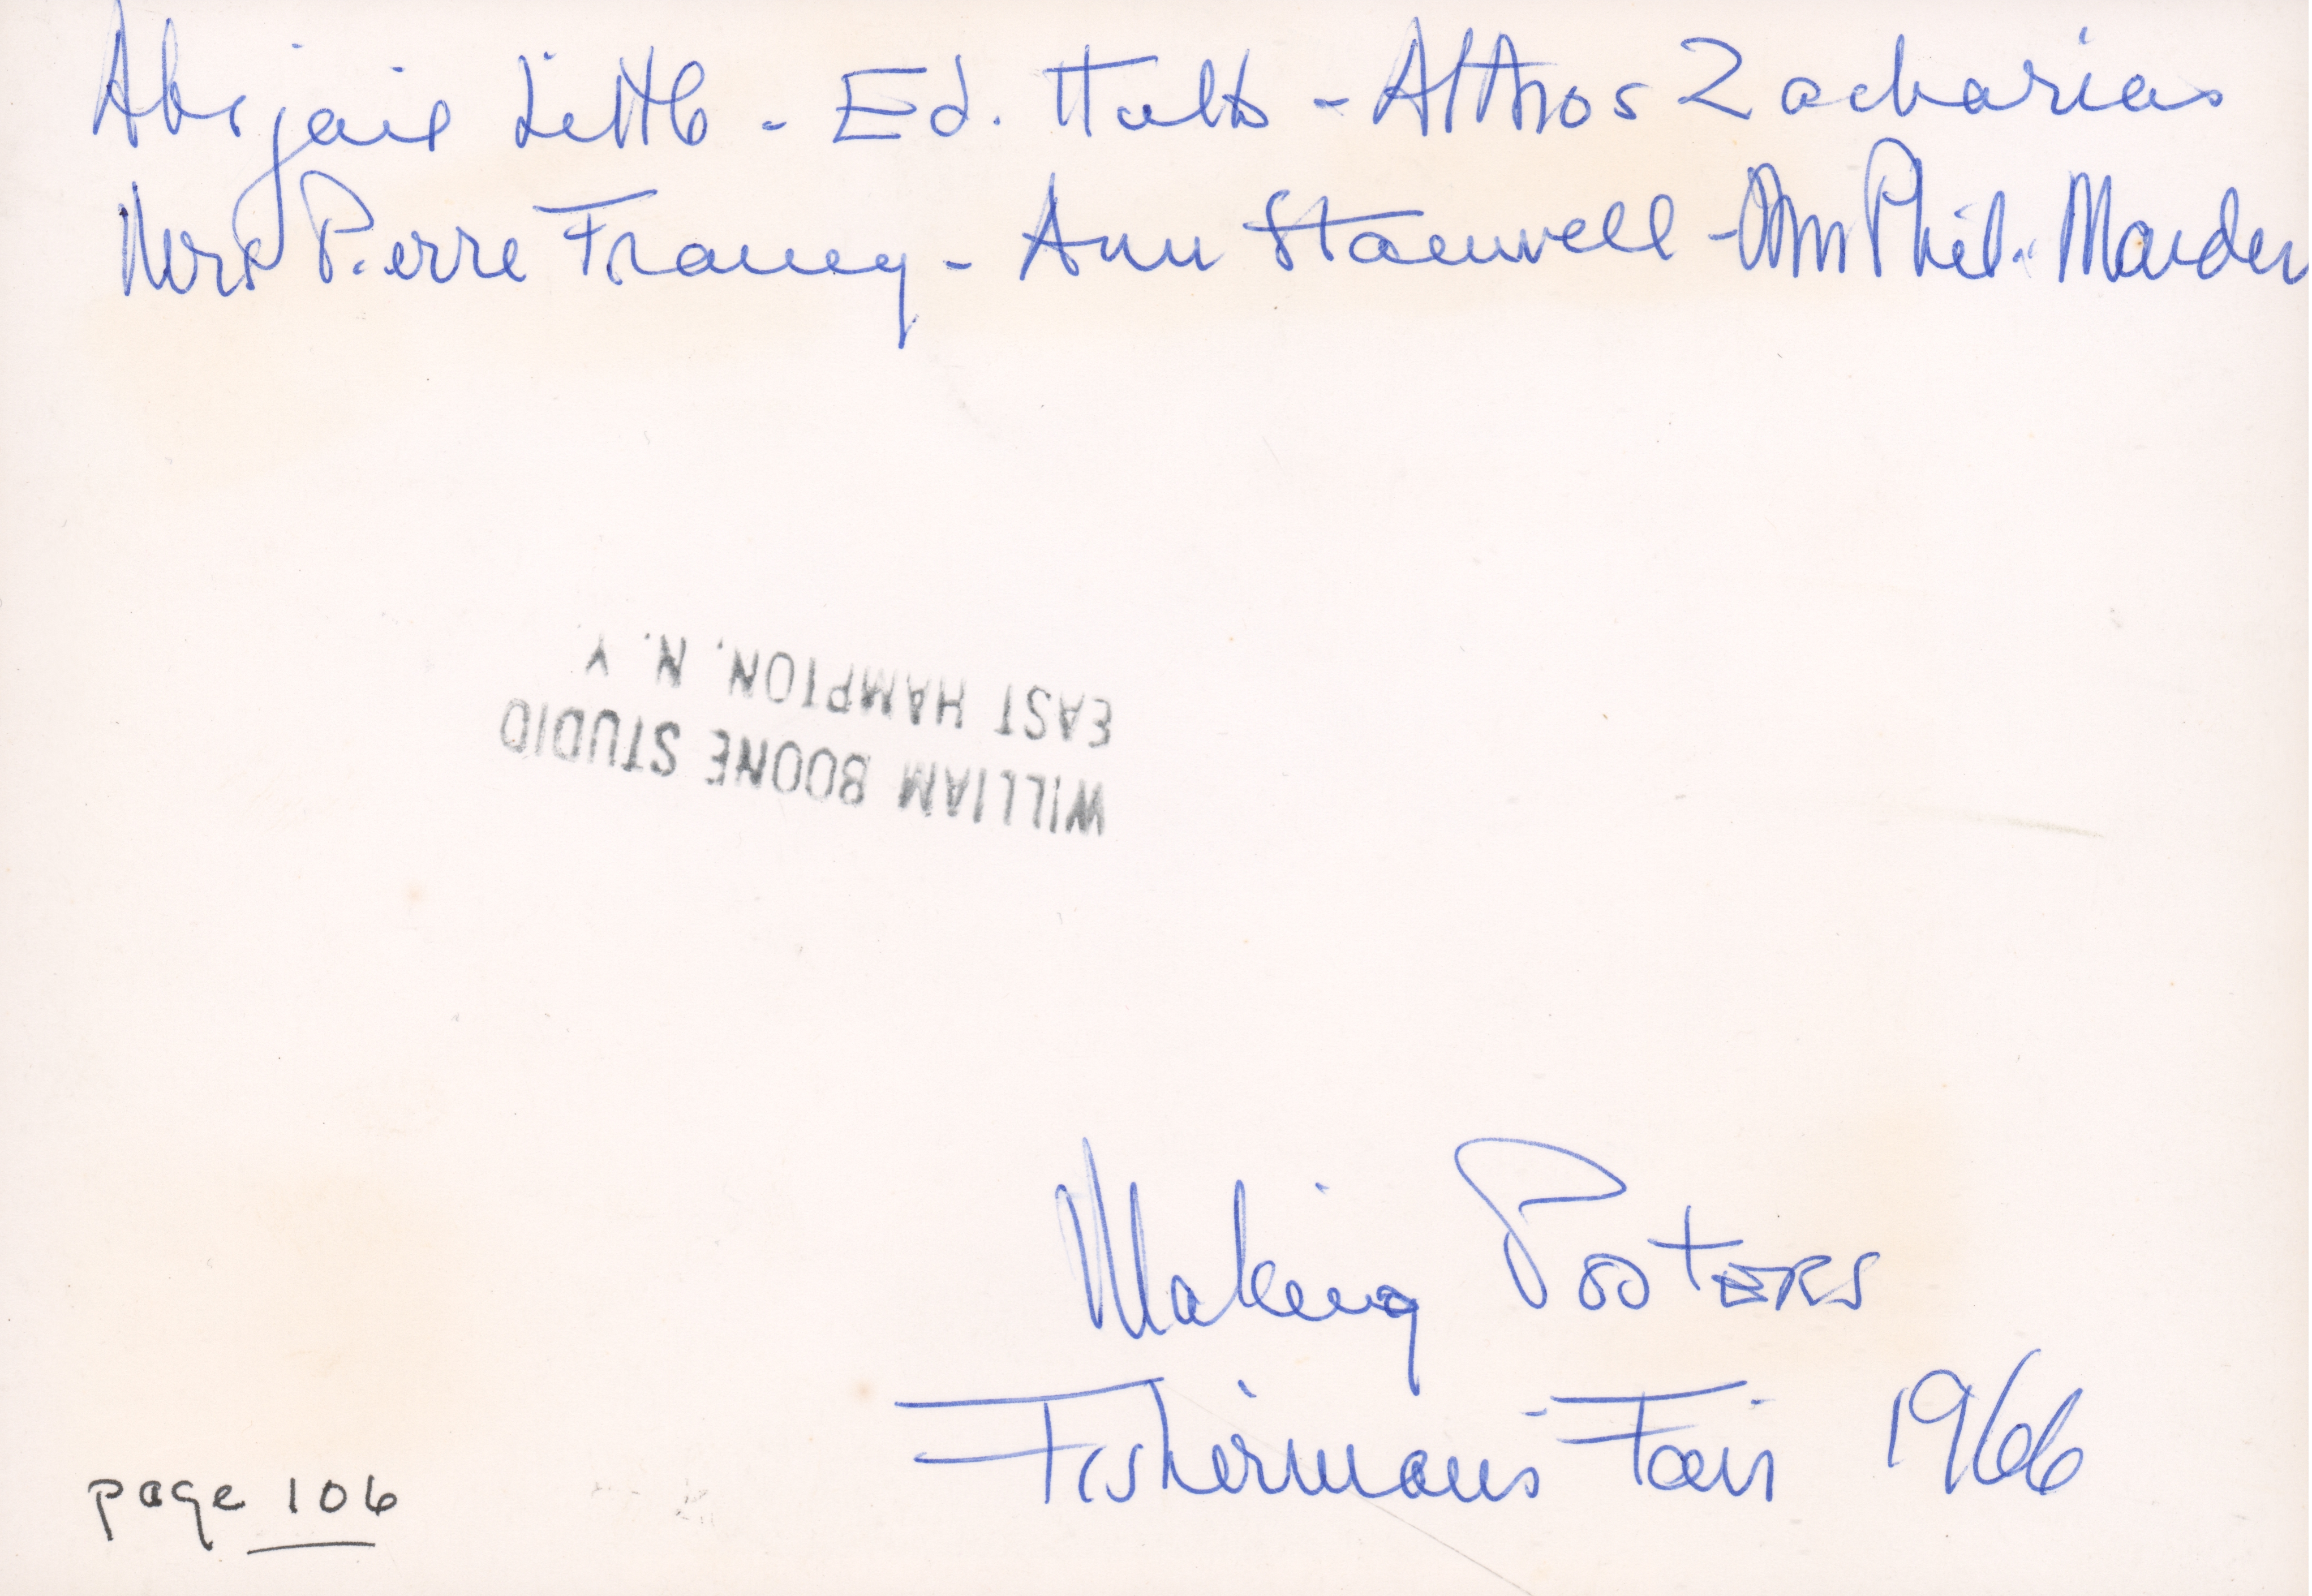 Abigail Little - Ed. Hults - Althos Zacharias
Mrs Pierre Franey - Ann Stanwell - Mrs Phil. Marden
EAST HAMPTON, N. Y.
WILLIAM BOONE STUDIO
Making Posters
Fisherman's Fair 1966
page 106